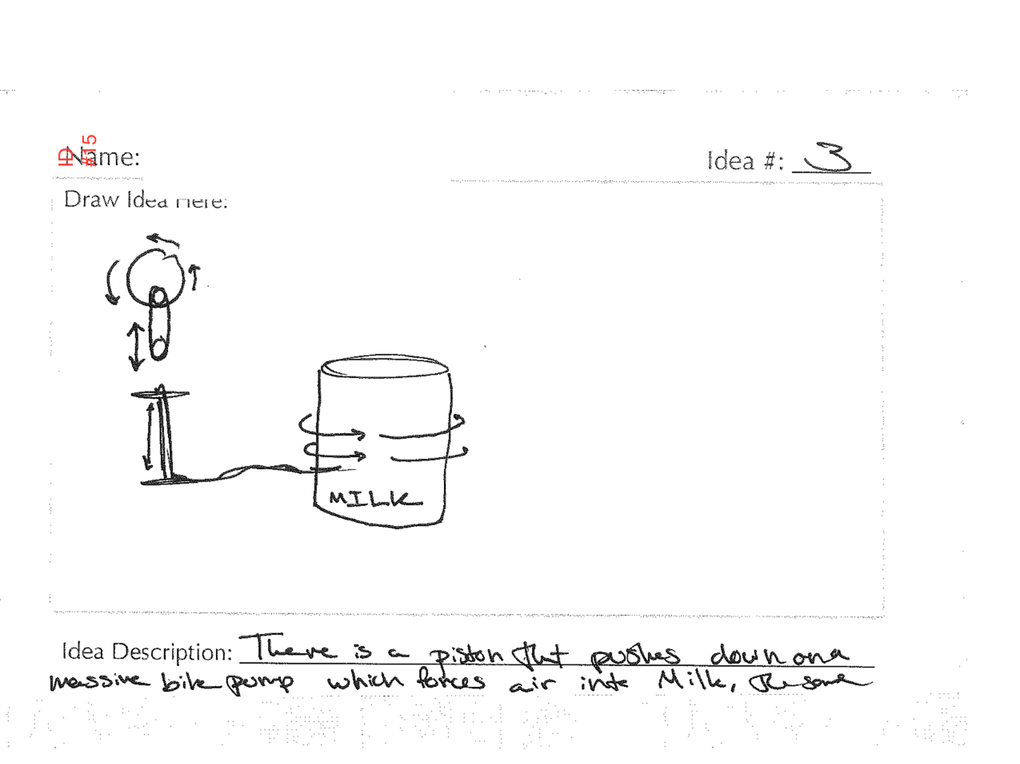 ID
#15
Name:
Idea #: 3
Draw Idea Here:
MILK
Idea Description: There is a piston that pushes down on a
massive bike pump which forces air into Milk, the same